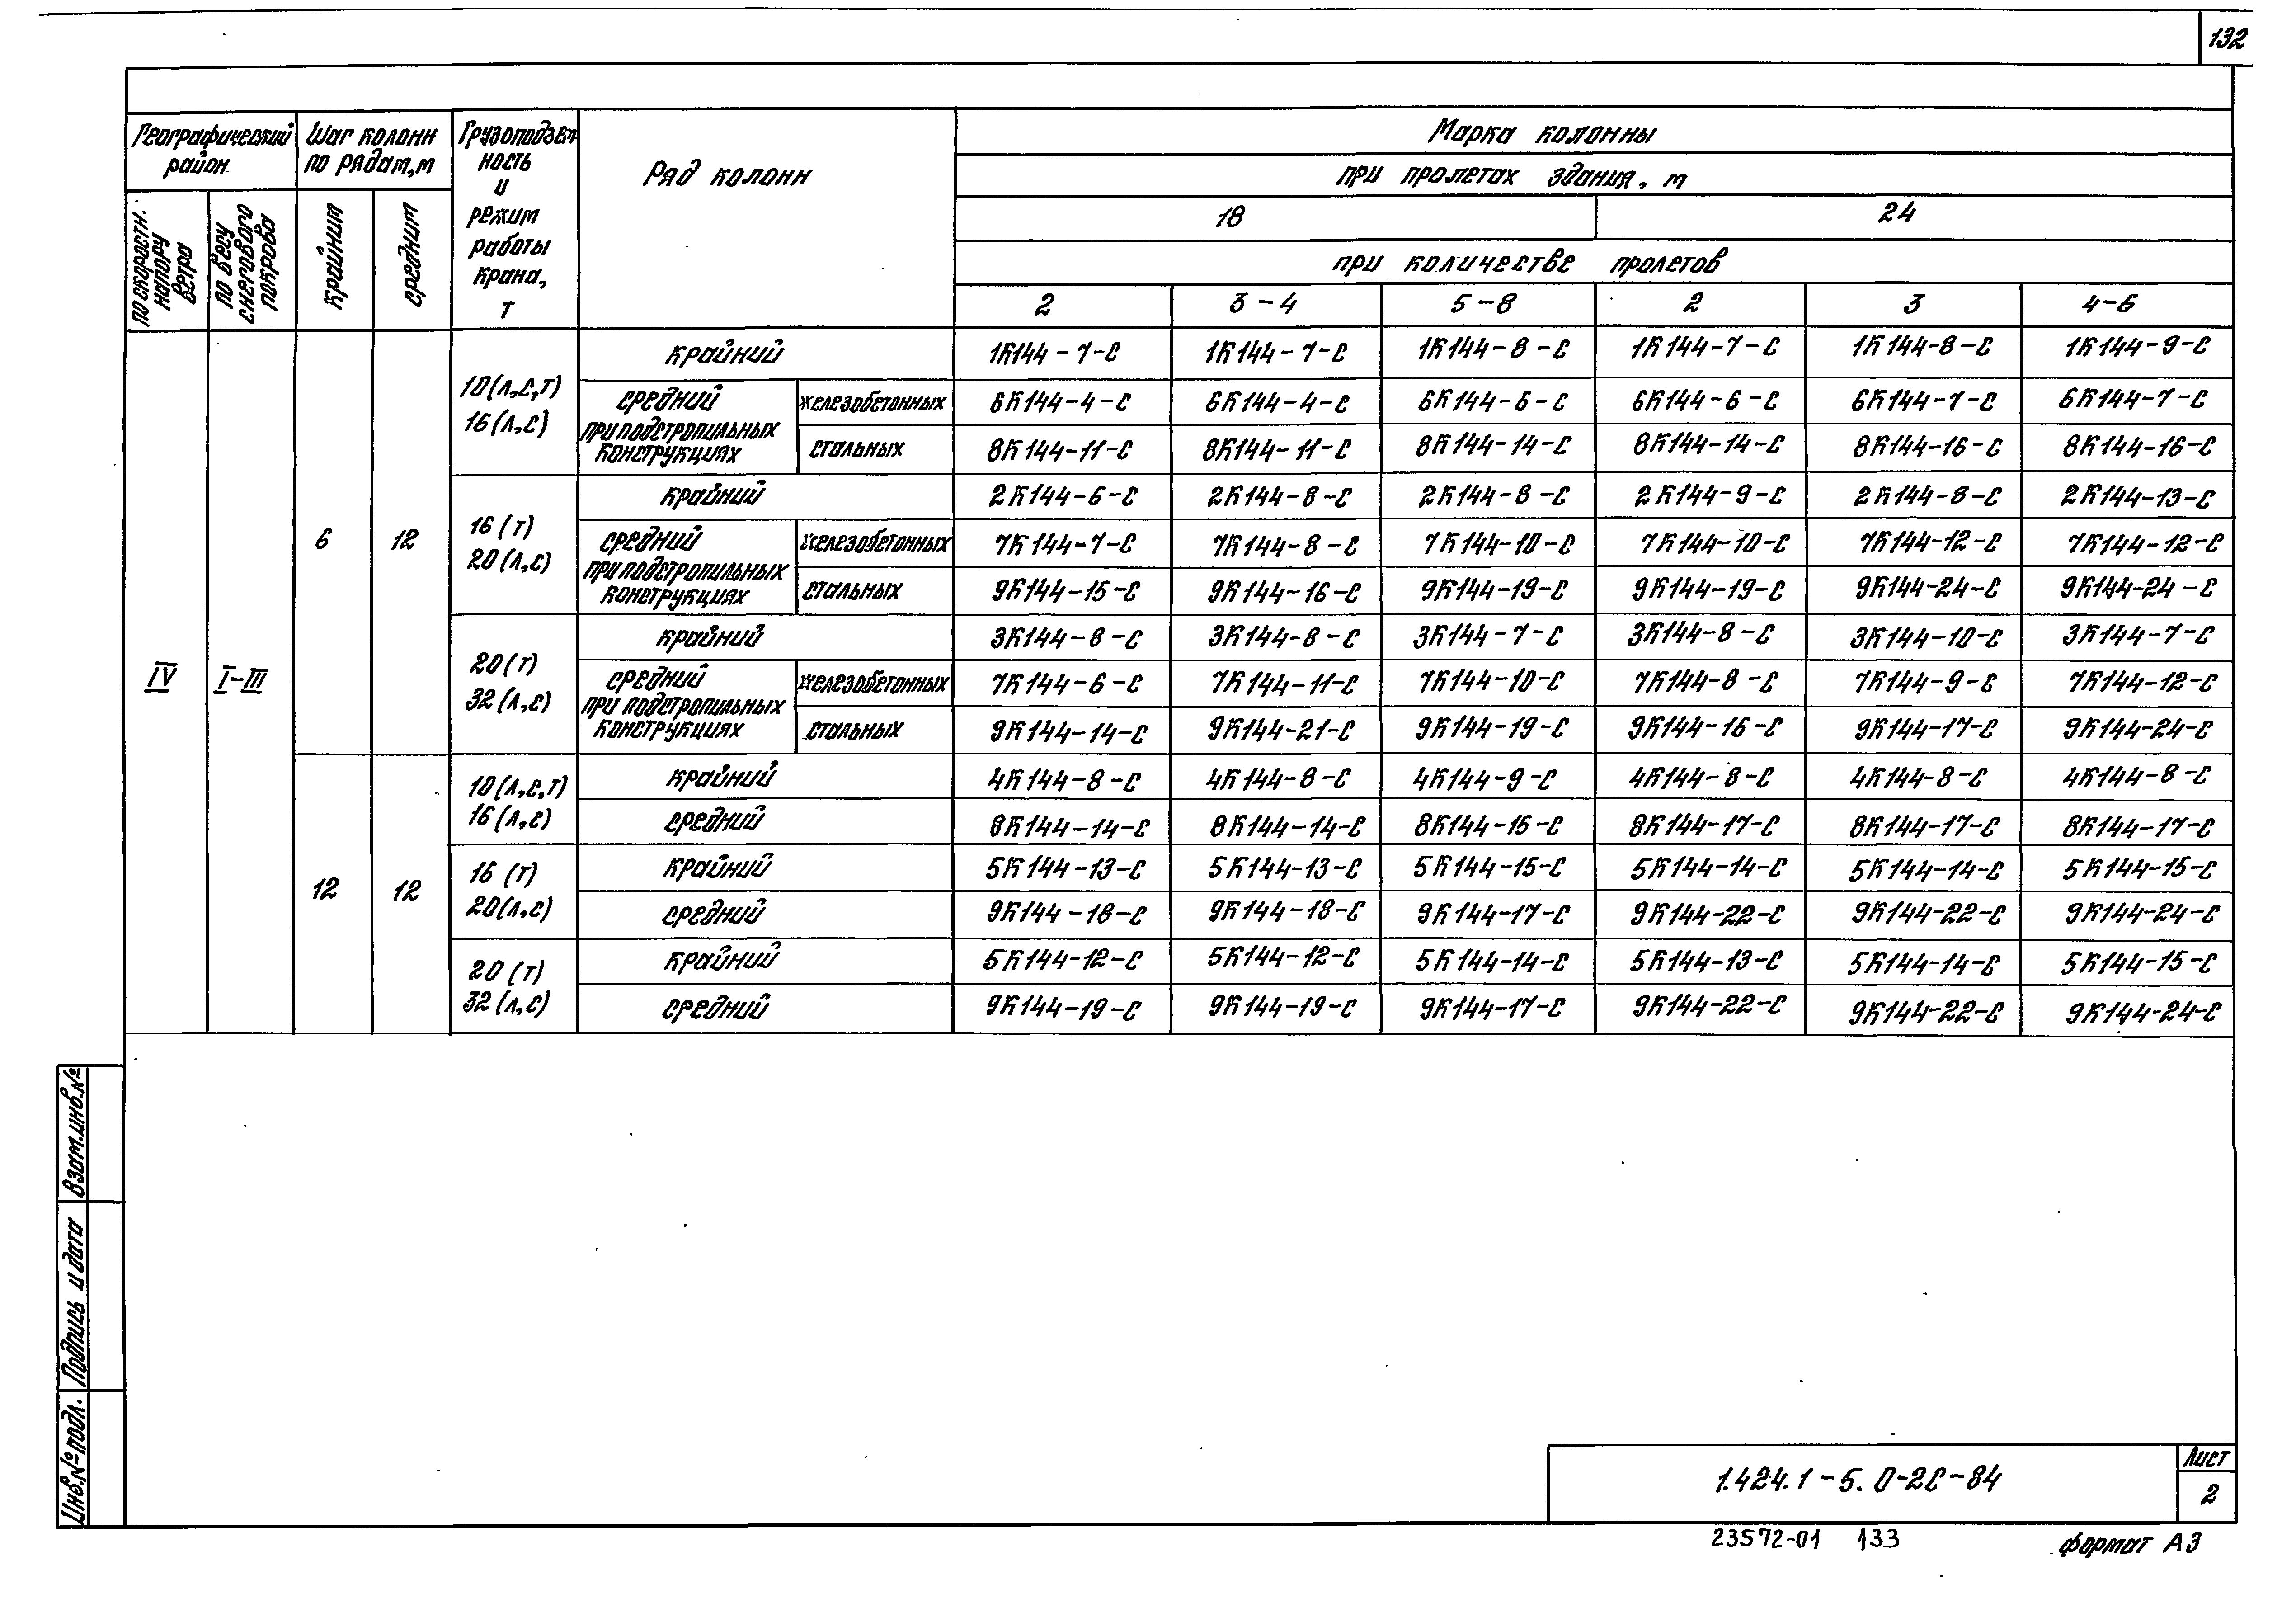 132
Географический район
Шаг колонн по рядам, м
Грузоподъем-
ность
и
режим
работы
крана,
т
Ряд колонн
Марка колонны
при пролетах здания, м
18 24
при количестве пролетов
по скоростн. напору ветра
по весу снегового покрова
крайним
средним
2 3-4 5-8 2 3 4-6
IV I-III
6 12
10(л,с,т)
16(л,с)
крайний 1К144-7-С 1К144-7-С 1К144-8-С 1К144-7-С 1К144-8-С 1К144-9-С
средний при подстропильных конструкциях
железобетонных 6К144-4-С 6К144-4-С 6К144-6-С 6К144-6-С 6К144-7-С 6К144-7-С
стальных 8К144-11-С 8К144-11-С 8К144-14-С 8К144-14-С 8К144-16-С 8К144-16-С
16(т)
20(л,с)
крайний 2К144-6-С 2К144-8-С 2К144-8-С 2К144-9-С 2К144-8-С 2К144-13-С
средний при подстропильных конструкциях
железобетонных 7К144-7-С 7К144-8-С 7К144-10-С 7К144-10-С 7К144-12-С 7К144-12-С
стальных 9К144-15-С 9К144-16-С 9К144-19-С 9К144-19-С 9К144-24-С 9К144-24-С
20(т)
32(л,с)
крайний 3К144-8-С 3К144-8-С 3К144-7-С 3К144-8-С 3К144-10-С 3К144-7-С
средний при подстропильных конструкциях
железобетонных 7К144-6-С 7К144-11-С 7К144-10-С 7К144-8-С 7К144-9-С 7К144-12-С
стальных 9К144-14-С 9К144-21-С 9К144-19-С 9К144-16-С 9К144-17-С 9К144-24-С
12 12
10(л,с,т)
16(л,с)
крайний 4К144-8-С 4К144-8-С 4К144-9-С 4К144-8-С 4К144-8-С 4К144-8-С
средний 8К144-14-С 8К144-14-С 8К144-15-С 8К144-17-С 8К144-17-С 8К144-17-С
16 (т)
20(л,с)
крайний 5К144-13-С 5К144-13-С 5К144-15-С 5К144-14-С 5К144-14-С 5К144-15-С
средний 9К144-18-С 9К144-18-С 9К144-17-С 9К144-22-С 9К144-22-С 9К144-24-С
20 (т)
32(л,с)
крайний 5К144-12-С 5К144-12-С 5К144-14-С 5К144-13-С 5К144-14-С 5К144-15-С
средний 9К144-19-С 9К144-19-С 9К144-17-С 9К144-22-С 9К144-22-С 9К144-24-С
Взам.инв.№
Подпись и дата
Инв.№подл.
1.424.1-5.0-2С-84
Лист
2
23572-01 133
формат А3